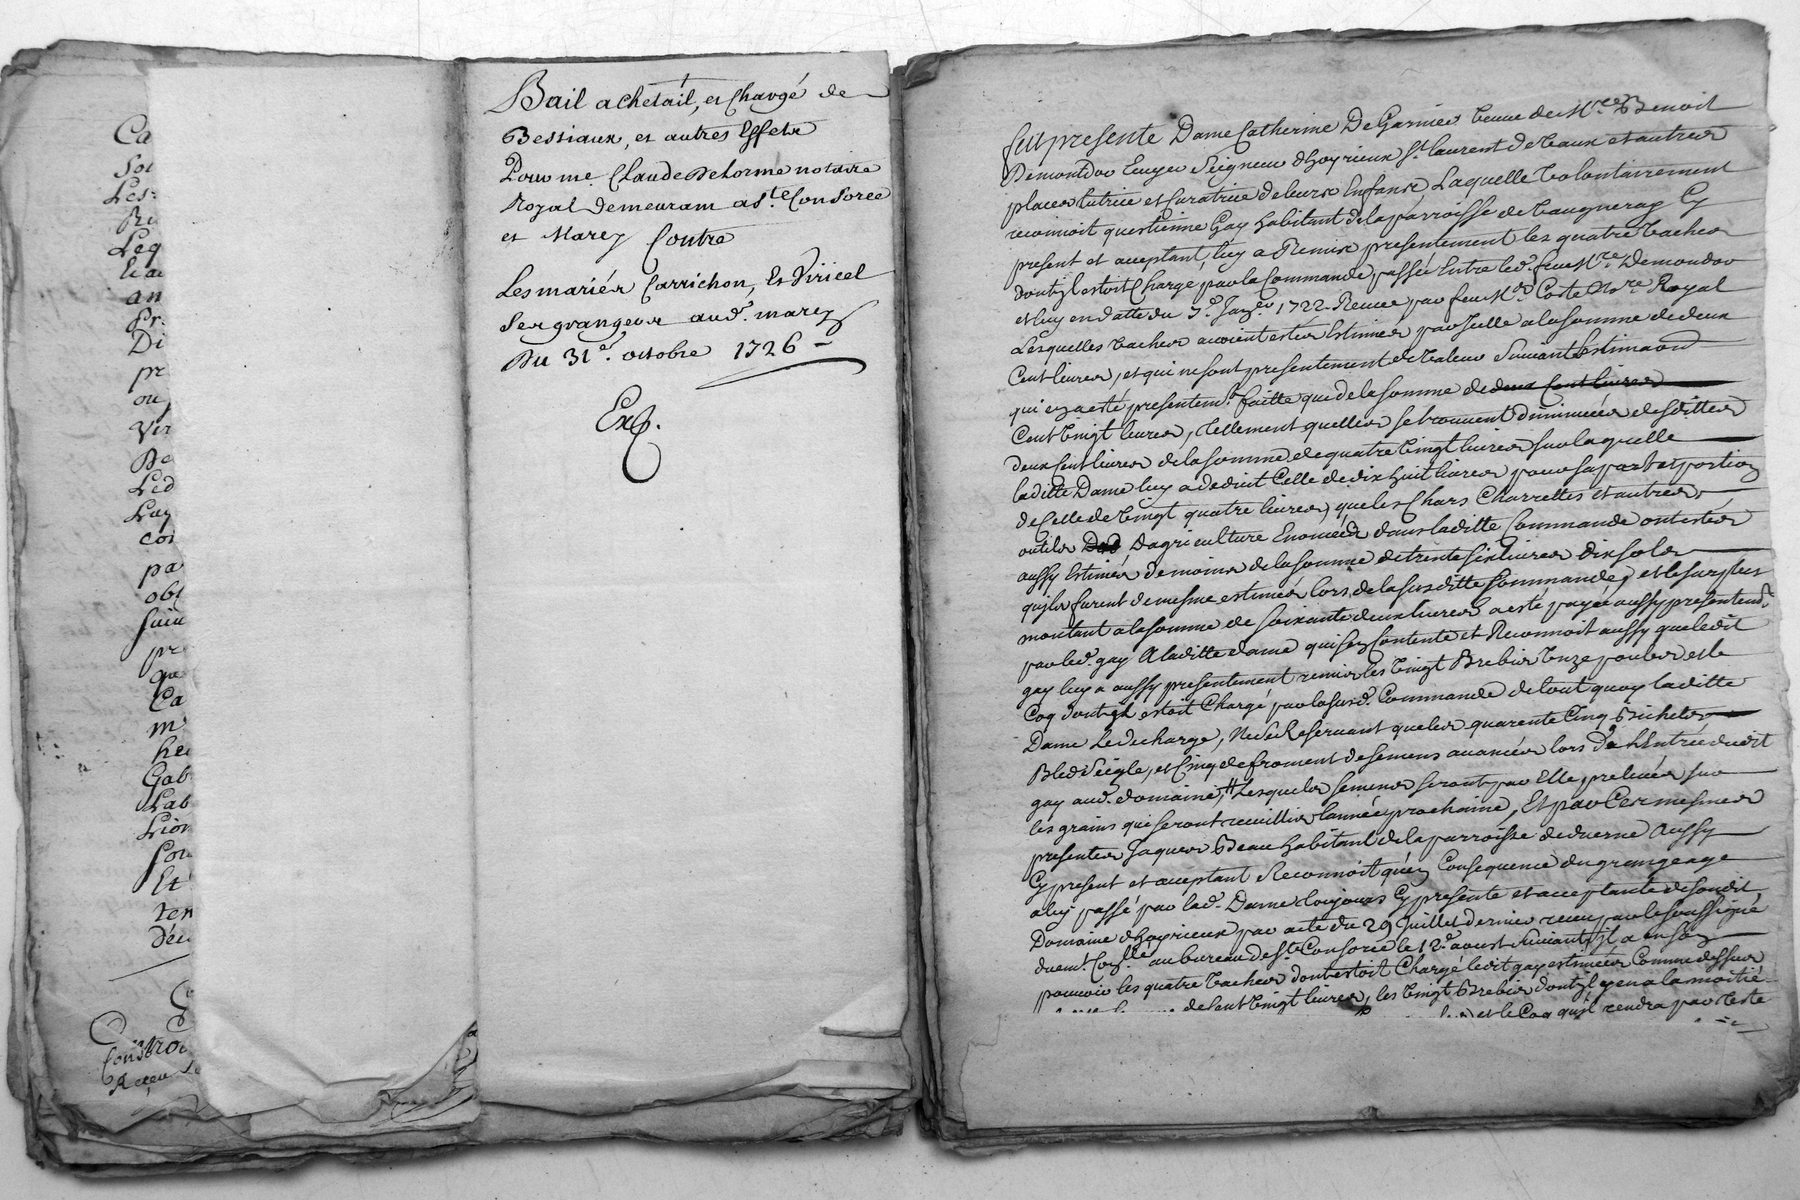 Ca
Soi
Les
Re
Leq
an
Pr
Di
pr
ou
Vir
De
Led
Lay
con
pa
obs
Suiv
pr
que
Ca
m
hee
Gab
Lab
Lion
Sou
Et
ten
dén
Controo
Receu
Bail a chétail, et Chargé de
Bestiaux, et autres Effets
Pour me Claude Delorme notaire
Royal demeurant a Ste Consorce
et Marcy Contre
Les mariés Carrichon, Et Viricel
Ses grangers aud. marcy
Du 31e. octobre 1726
Exp.
fut presente Dame Catherine De Garnier veuve de Mre Benoit
Demondor Ecuyer Seigneur dhoyrieux St. laurent de Vaux et autres
places tutrice et Curatrice de leurs Enfans Laquelle Volontairement
reconnoit questienne Gay habitant de la parroisse de Vaugneray Cy
present et acceptant, luy a Remis presentement les quatre Vaches
dont il estoit Chargé par la Commande passée Entre led. feu Mre. Demondor
et luy en datte du 7e. Janer. 1722. Receue par feu Me. Coste Nore. Royal
Lesquelles Vaches avoient estes Estimées par Icelle a la somme de deux
Cent livres, et qui ne sont presentement de Valeur Suivant l'Estimaon
qui en a esté presentemt. faitte que de la somme de deux Cent livres
Cent Vingt livres, tellement quelles se trouvent diminuées desdittes
deux Cent livres de la somme de quatre Vingt livres sur laquelle
laditte Dame luy a deduit Celle de dix huit livres pour sa part et portion
de Celle de Vingt quatre livres, que les Chars Charrettes et autres
outils Dagriculture Enoncés dans laditte Commande ont estés
aussy Estimés de moins de la somme de trente six livres dix sols
quils furent de mesme estimés lors de la susditte Commande, et le surplus
montant a la somme de soixante deux livres a esté payée aussy presentemt.
par led. gay A laditte dame qui sen Contente et Reconnoit aussy que ledit
gay luy a aussy presentement remis les Vingt Brebis Onze poules et le
Coq dont il estoit Chargé par la susd. Commande de tout quoy laditte
Dame Le decharge, Ne se Reservant que les quarente Cinq Bichets
Bled Seigle, et Cinq de froment de semens avancées lors de L'Entrée dudit
gay aud. domaine, Lesquels semens seront par Elle prelevés sur
les grains qui seront receuillis lannée prochaine, Et par Ces mesmes
presentes Jaques Beau habitant de la parroisse de duerne Aussy
Cy present et acceptant Reconnoit qu'en Consequence du grangeage
a luy passé par lad. Dame toujours Cy presente et acceptante de sondit
Domaine dhoyrieux par acte du 29 Juillet dernier receu par le soussigné
duemt. Conllé. au bureau de Ste Consorce le 12e. aoust Suivant, il a en son
pouvoir les quatre Vaches dont estoit Chargé ledit gay estimées Comme dessus
de Cent Vingt livres, les Vingt Brebis dont il y en a la moitié
et le Coq qu'il rendra par teste